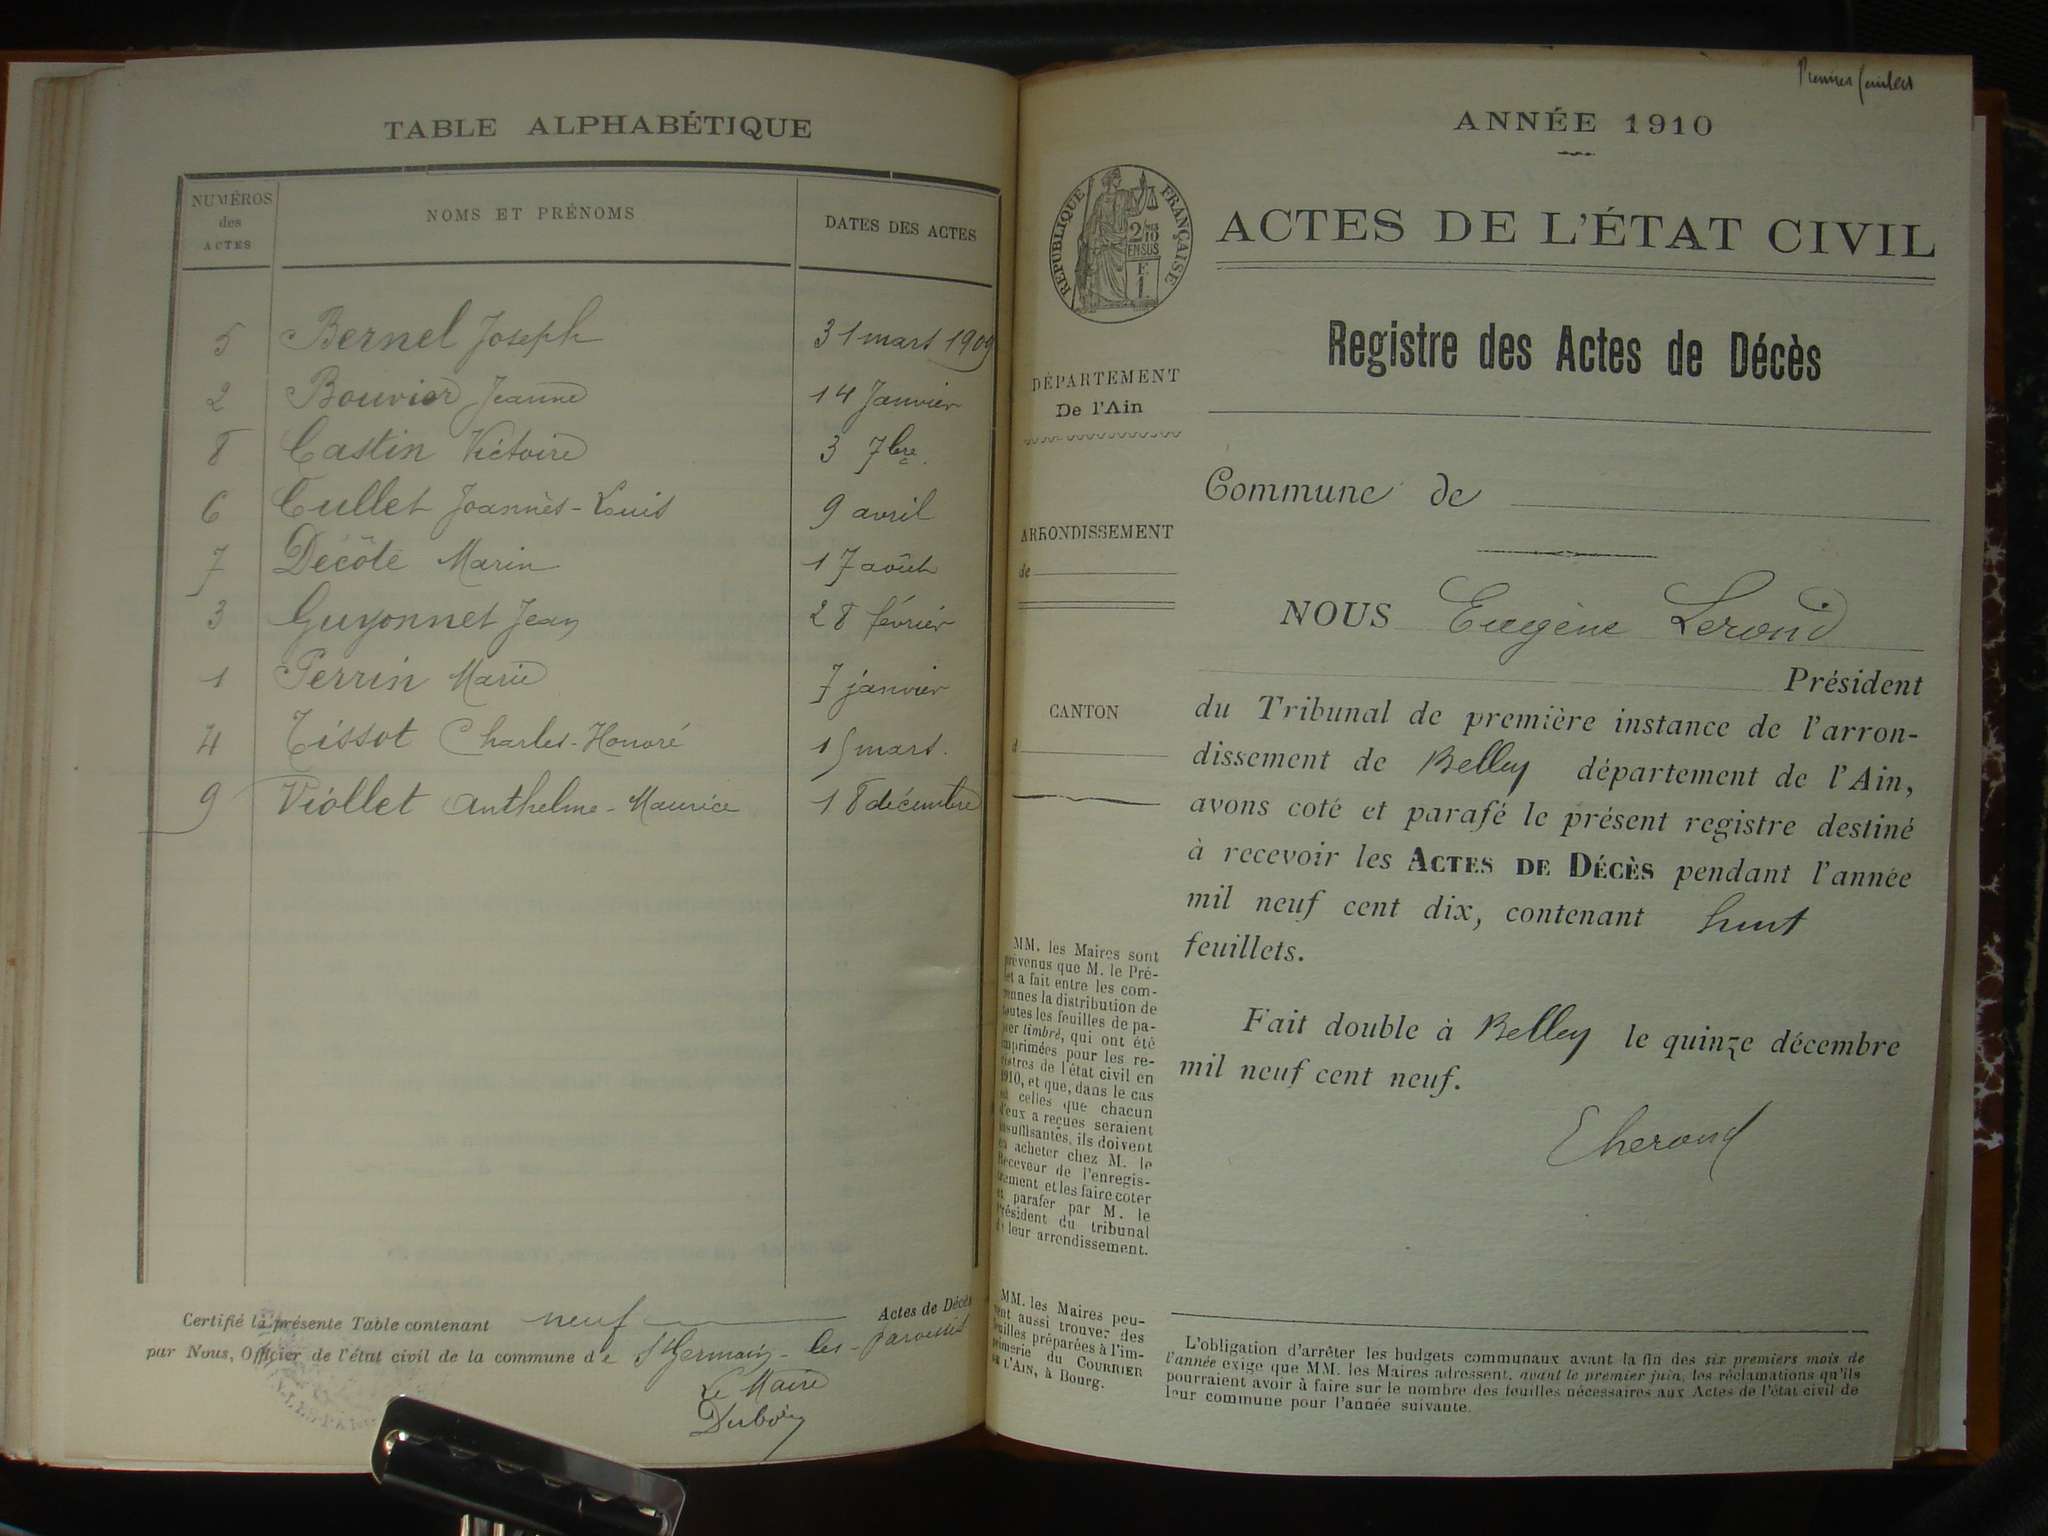 TABLE ALPHABÉTIQUE
NUMÉROS des ACTES NOMS ET PRÉNOMS DATES DES ACTES
5 Bernel Joseph 31 mars 1909
2 Bouvier Jeanne 14 Janvier
8 Castin Victoire 3 7bre
6 Cullet Joannès-Louis 9 avril
7 Décôte Marin 17 août
3 Guyonnet Jean 28 février
1 Perrin Marie 7 janvier
4 Tissot Charles-Honoré 15 mars.
9 Viollet Anthelme-Maurice 18 décembre
Certifié la présente Table contenant neuf Actes de Décès
par Nous, Officier de l'état civil de la commune de St Germain-les-Paroisses
Le Maire
Premier feuillet
ANNÉE 1910
RÉPUBLIQUE FRANÇAISE
2/10
EN SUS
E
1
ACTES DE L'ÉTAT CIVIL
Registre des Actes de Décès
DÉPARTEMENT
De l'Ain
Commune de
ARRONDISSEMENT
de
NOUS Eugène Lerond
Président
du Tribunal de première instance de l'arron-
dissement de Belley département de l'Ain,
avons coté et parafé le présent registre destiné
à recevoir les ACTES DE DÉCÈS pendant l'année
mil neuf cent dix, contenant huit
feuillets.
Fait double à Belley le quinze décembre
mil neuf cent neuf.
CANTON
d
MM. les Maires sont
prévenus que M. le Pré-
fet a fait entre les com-
munes la distribution de
toutes les feuilles de pa-
pier timbré, qui ont été
imprimées pour les re-
gistres de l'état civil en
1910, et que, dans le cas
où celles que chacun
d'eux a reçues seraient
insuffisantes, ils doivent
en acheter chez M. le
Receveur de l'enregis-
trement et les faire coter
et parafer par M. le
Président du tribunal
de leur arrondissement.
MM. les Maires peu-
vent aussi trouver des
feuilles préparées à l'im-
primerie du COURRIER
DE L'AIN, à Bourg.
L'obligation d'arrêter les budgets communaux avant la fin des six premiers mois de
l'année exige que MM. les Maires adressent, avant le premier juin, les réclamations qu'ils
pourraient avoir à faire sur le nombre des feuilles nécessaires aux Actes de l'état civil de
leur commune pour l'année suivante.